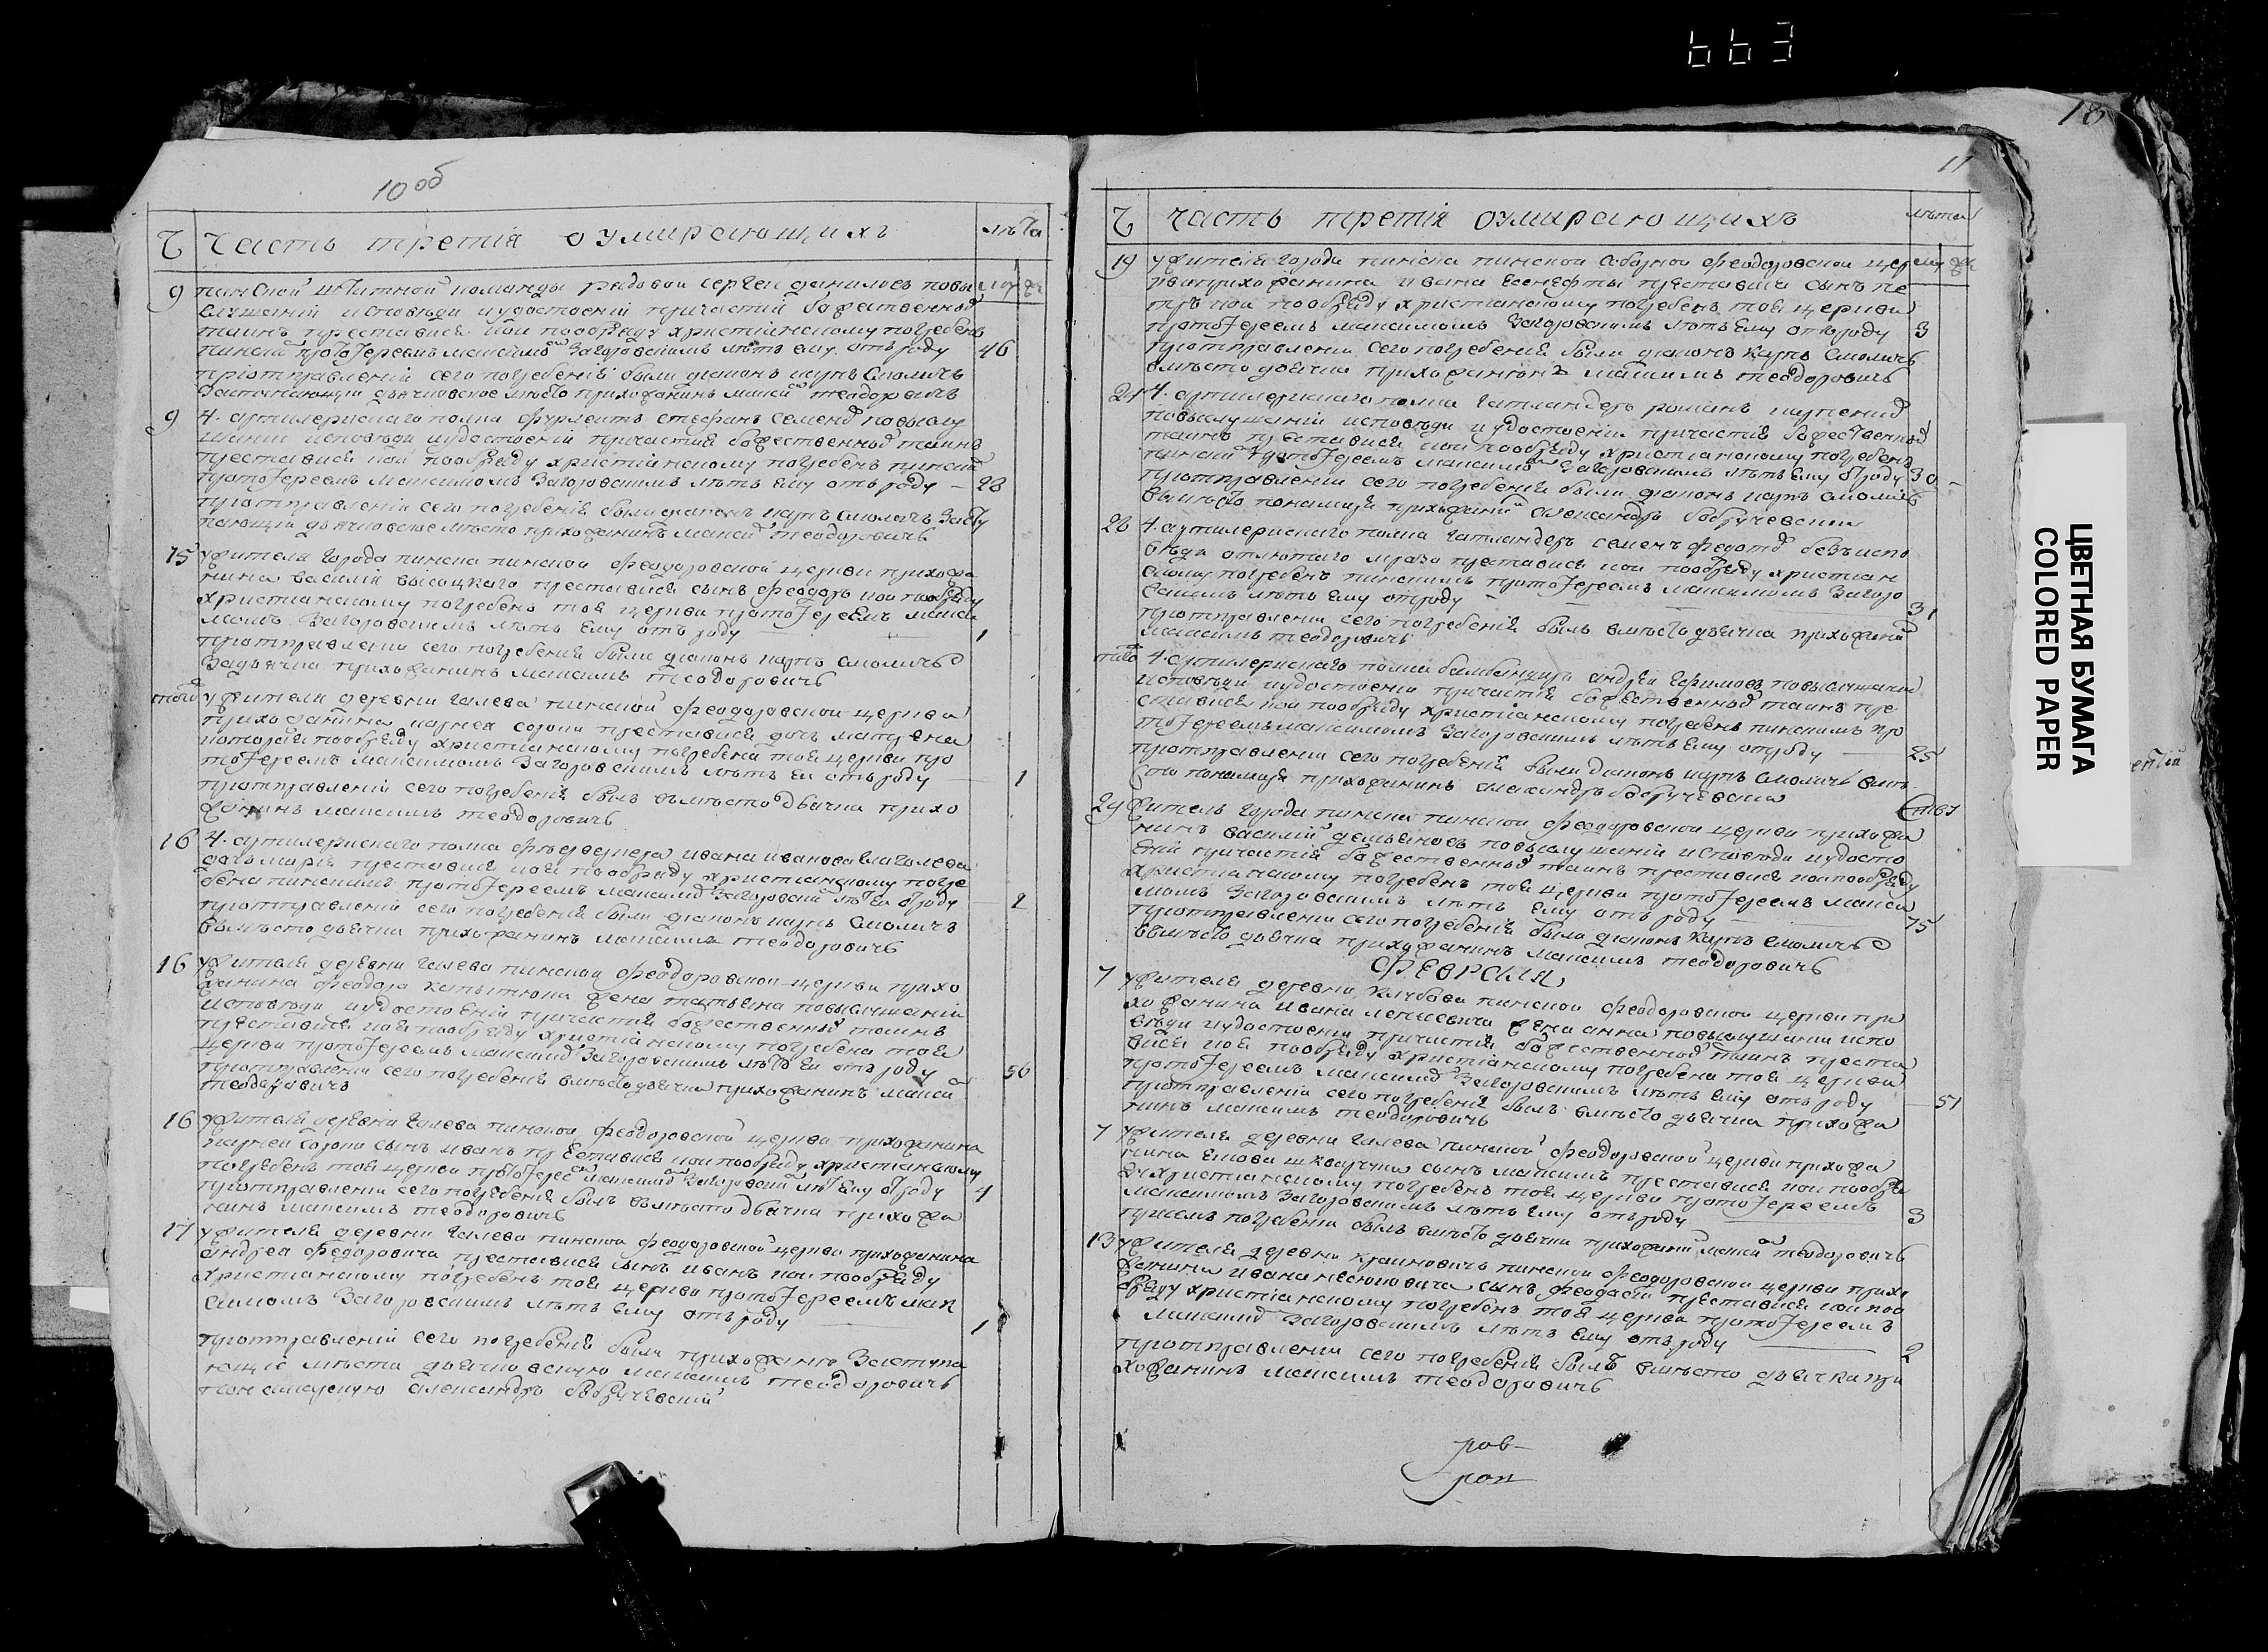 663
18
10 об
Ч Часть третія оумирающихъ лѣта
9 пинской штатной команды рядовой сергей даниловъ повы муж
слушаніи исповѣди иудостоеніи причастія божественныхъ
таинъ преставися кои пообряду христіянскому погребенъ
пинскимъ протоіереемъ максимомъ Загоровскимъ лѣтъ ему отъ роду 46
приотправленіи сего погребенія были діаконъ карпъ Смоличъ
Заступающій дьячковское мѣсто прихожанинъ максимъ теодоровичъ
9 4. артилерискаго полка стефанъ семенъ повыслу
шаніи исповѣди иудостоеніи причастія божественныхъ таинъ
преставися кой пообряду христіянскому погребенъ пинскимъ
протоіереемъ максимомъ Загоровскимъ лѣтъ ему отъ роду — 28
приотправленіи сего погребенія были діаконъ карпъ смоличъ Засту
пающій дьячковское мѣсто прихожанинъ максимъ теодоровичъ
15 ужителя города пинска пинской феодоровской церкви прихожа
нина василія высоцкаго преставися сынъ феодоръ кои пообряду
христианскому погребенъ той церкви протоіереемъ макси
момъ Загоровскимъ лѣтъ ему отъ роду 1
приотправленіи сего погребенія были діаконъ карпъ смоличъ
Задьячка прихожанинъ максимъ теодоровичъ
тогожъ ужителя деревни галева пинской феодоровской церкви
прихожанина карнея сороки преставися дочь матрена
которая пообряду христианскому погребена той церкви про
тоіереемъ максимомъ Загоровскимъ лѣтъ ей отъ роду 1
приотправленіи сего погребенія былъ вмѣсто дьячка прихо
жанинъ максимъ теодоровичъ
16 4. артилерискаго полка ивана иванова
дочь марія преставися коя пообряду христианскому погре
бена пинскимъ протоіереемъ максимомъ Загоровскимъ лѣтъ ей отроду 2
приотправленіи сего погребенія были діаконъ карпъ Смоличъ
вмѣсто дьячка прихожанинъ максимъ теодоровичъ
16 ужителя деревни галева пинской феодоровской церкви прихо
жанина феодора жена татьяна повыслушаніи
исповѣди иудостоеніи причастія божественныхъ таинъ
преставися коя пообряду христіянскому погребена той
церкви протоіереемъ максимомъ Загоровскимъ лѣтъ ей отъ роду 50
приотправленіи сего погребенія вмѣсто дьячка прихожанинъ максимъ
теодоровичъ
16 ужителя деревни галева пинской феодоровской церкви прихожанина
карнея сороки сынъ иванъ преставися кои пообряду христианскому
погребенъ той церкви протоіереемъ максимомъ Загоровскимъ лѣтъ ему отроду 4
приотправленіи сего погребенія былъ вмѣсто дьячка прихожа
нинъ максимъ теодоровичъ
17 ужителя деревни галева пинской феодоровской церкви прихожанина
андрея федоровича преставися сынъ иванъ кои пообряду
христианскому погребенъ той церкви протоіереемъ мак
симомъ Загоровскимъ лѣтъ ему отъ роду 1
приотправленіи сего погребенія были прихожане Заступа
ющіе мѣста дьячковскую максимъ теодоровичъ
пономарскую александръ бобручевскій
11
Ч часть третія оумирающихъ лѣта
19 ужителя города пинска пинской соборной феодоровской цер
квиприхожанина ивана преставися сынъ пе
тръ кои пообряду христианскому погребенъ той церкви
протоіереемъ максимомъ Загоровскимъ лѣтъ ему отъ роду 3
приотправленіи сего погребенія были діаконъ карпъ Смоличъ
вмѣсто дьячка прихожанинъ максимъ теодоровичъ
21 4. артилерискаго полка гатландеръ романъ
повыслушаніи исповѣди иудостоеніи причастія божественныхъ
таинъ преставися кои пообряду христианскому погребенъ
пинскимъ протоіереемъ максимомъ Загоровскимъ лѣтъ ему отроду 30 —
приотправленіи сего погребенія были діаконъ карпъ смоличъ
вмѣсто пономаря прихожанинъ александръ бобручевскій
28 4. артилерискаго полка гатландеръ семенъ федотовъ безъ испо
вѣди отлютаго мраза преставися кои пообряду христиан
скому погребенъ пинскимъ протоіереемъ максимомъ Загоро
вскимъ лѣтъ ему отроду 31
приотправленіи сего погребенія былъ вмѣсто дьячка прихожанинъ
максимъ теодоровичъ
тогожъ 4. артилерискаго полка бамбандиръ андрей ефимовъ повыслушаніи
исповѣди иудостоеніи причастія божественныхъ таинъ пре
ставися кои пообряду христианскому погребенъ пинскимъ про
тоіереемъ максимомъ Загоровскимъ лѣтъ ему отроду 25
приотправленіи сего погребенія были діаконъ карпъ смоличъ вмѣ
сто пономаря прихожанинъ александръ бобручевскій
29 житель города пинска пинской феодоровской церкви прихожа
нинъ василій демьяновъ повыслушаніи исповѣди иудосто
еніи причастія божественныхъ таинъ преставися кои пообряду
христианскому погребенъ той церкви протоіереемъ макси
момъ Загоровскимъ лѣтъ ему отъ роду 75
приотправленіи сего погребенія были діаконъ карпъ смоличъ
вмѣсто дьячка прихожанинъ максимъ теодоровичъ
ФЕВРАЛЯ
7 ужителя деревни пинской феодоровской церкви при
хожанина ивана жена анна повыслушаніи испо
вѣди иудостоеніи причастія божественныхъ таинъ преста
вися коя пообряду христианскому погребена той церкви
протоіереемъ максимомъ Загоровскимъ лѣтъ ему отъ роду 51
приотправленіи сего погребенія былъ вмѣсто дьячка прихожа
нинъ максимъ теодоровичъ
7 ужителя деревни галева пинской феодоровской церкви прихожа
нина сынъ максимъ преставися кои пообря
ду христианскому погребенъ той церкви протоіереемъ
максимомъ Загоровскимъ лѣтъ ему отъ роду 3
присемъ погребеніи былъ вмѣсто дьячка прихожанинъ максимъ теодоровичъ
13 ужителя деревни краиновичъ пинской феодоровской церкви прихо
жанина ивана сынъ преставися кои поо
бряду христіанскому погребенъ той церкви протоіереемъ
максимомъ Загоровскимъ лѣтъ ему отъ роду 2
приотправленіи сего погребенія былъ вмѣсто дьячка при
хожанинъ максимъ теодоровичъ
ЦВЕТНАЯ БУМАГА
COLORED PAPER